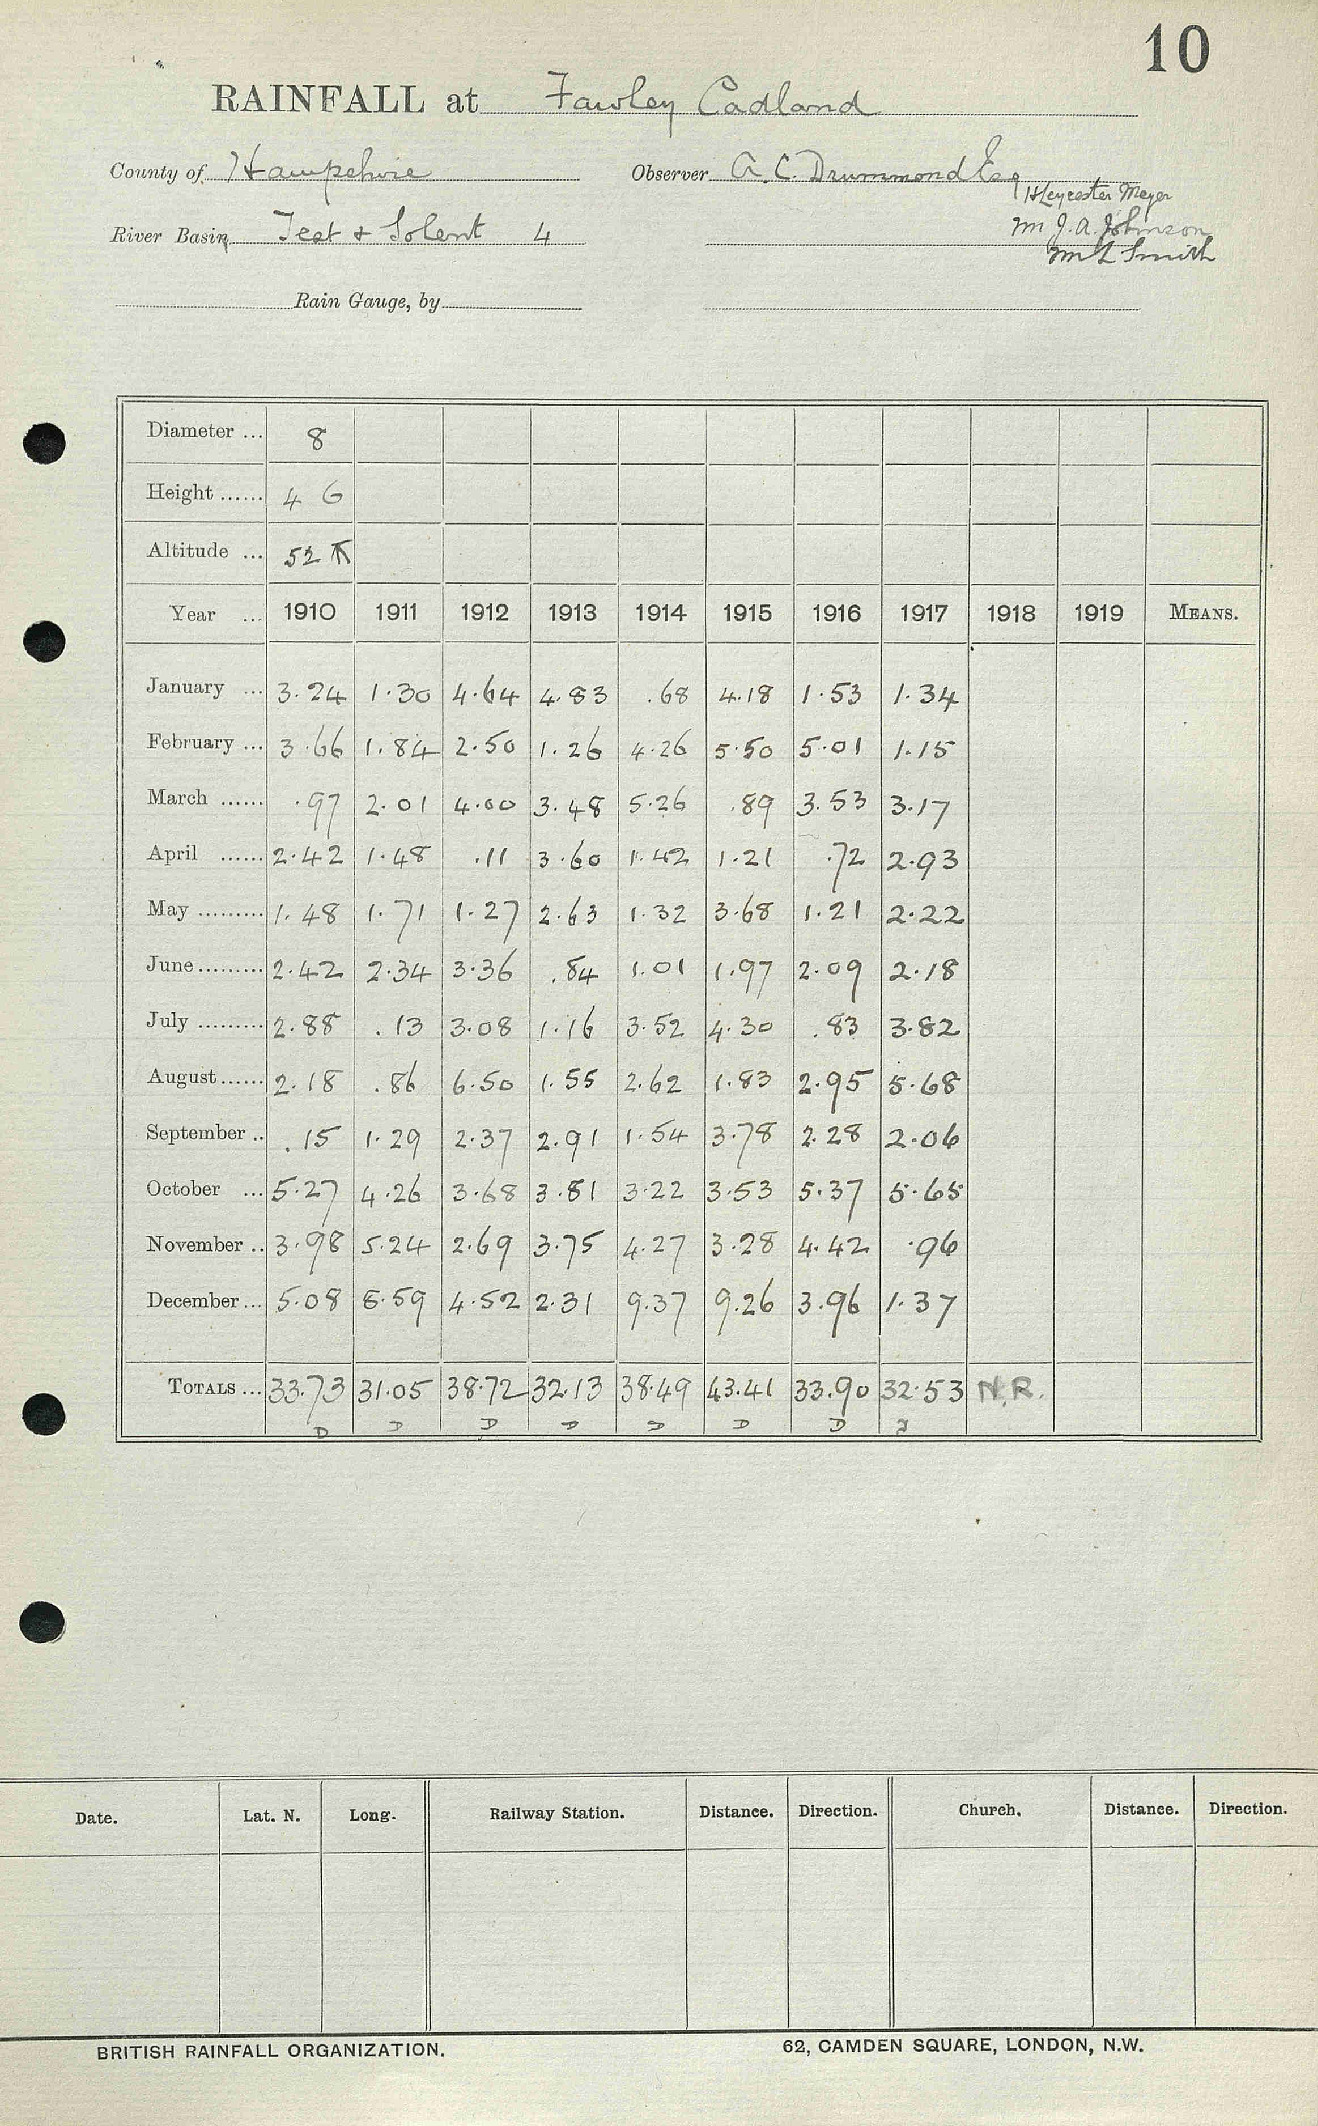 10
RAINFALL at Fawley Cadland
County of Hampshire Observer A. C. Drummond Esq
H Leycester Meyer
River Basin Test & Solent 4 Mr J. A. Johnson
Mr L Smith
Rain Gauge, by
Diameter ... 8
Height ...... 4 6
Altitude ... 52
Year ... 1910 1911 1912 1913 1914 1915 1916 1917 1918 1919 MEANS.
January ... 3.24 1.30 4.64 4.83 .68 4.18 1.53 1.34
February ... 3.66 1.84 2.50 1.26 4.26 5.50 5.01 1.15
March ...... .97 2.01 4.00 3.48 5.26 .89 3.53 3.17
April ...... 2.42 1.48 .11 3.60 1.42 1.21 .72 2.93
May ......... 1.48 1.71 1.27 2.63 1.32 3.68 1.21 2.22
June ......... 2.42 2.34 3.36 .84 1.01 1.97 2.09 2.18
July ......... 2.88 .13 3.08 1.16 3.52 4.30 .83 3.82
August ...... 2.18 .86 6.50 1.55 2.62 1.83 2.95 5.68
September .. .15 1.29 2.37 2.91 1.54 3.78 2.28 2.06
October ... 5.27 4.26 3.68 3.81 3.22 3.53 5.37 5.65
November .. 3.98 5.24 2.69 3.75 4.27 3.28 4.42 .96
December ... 5.08 8.59 4.52 2.31 9.37 9.26 3.96 1.37
TOTALS ... 33.73 31.05 38.72 32.13 38.49 43.41 33.90 32.53 N.R.
D D D D D D D
Date. Lat. N. Long. Railway Station. Distance. Direction. Church. Distance. Direction.
BRITISH RAINFALL ORGANIZATION. 62, CAMDEN SQUARE, LONDON, N.W.